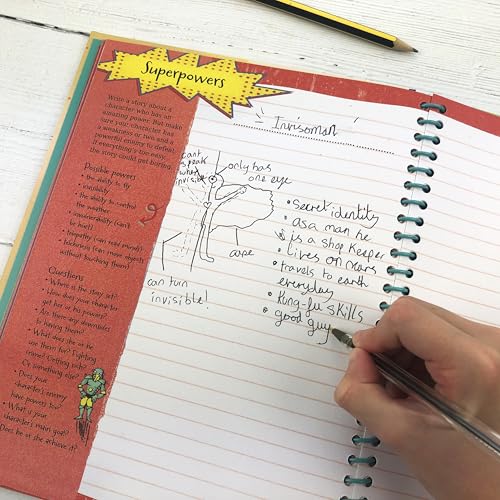 Superpowers
Write a story about a
character who has an
amazing power. But make
sure your character has
a weakness or two and a
powerful enemy to defeat.
If everything's too easy,
the story could get boring.
Possible powers
• the ability to fly
• invisibility
• the ability to control
the weather
• invulnerability (can't
be hurt)
• telepathy (can read minds)
• telekinesis (can move objects
without touching them)
Questions
• Where is the story set?
• How does your character
get her or his powers?
• Are there any downsides
to having them?
• What does she or he
use them for? Fighting
crime? Getting rich?
Or something else?
• Does your
character's enemy
have powers too?
• What is your
character's main goal?
Does he or she achieve it?
Invisoman
can't
speak
when
invisible
only has
one eye
cape
can turn
invisible!
• secret identity
• as a man he
is a shop keeper
• lives on mars
• travels to earth
everyday
• Kung-fu skills
• good guy